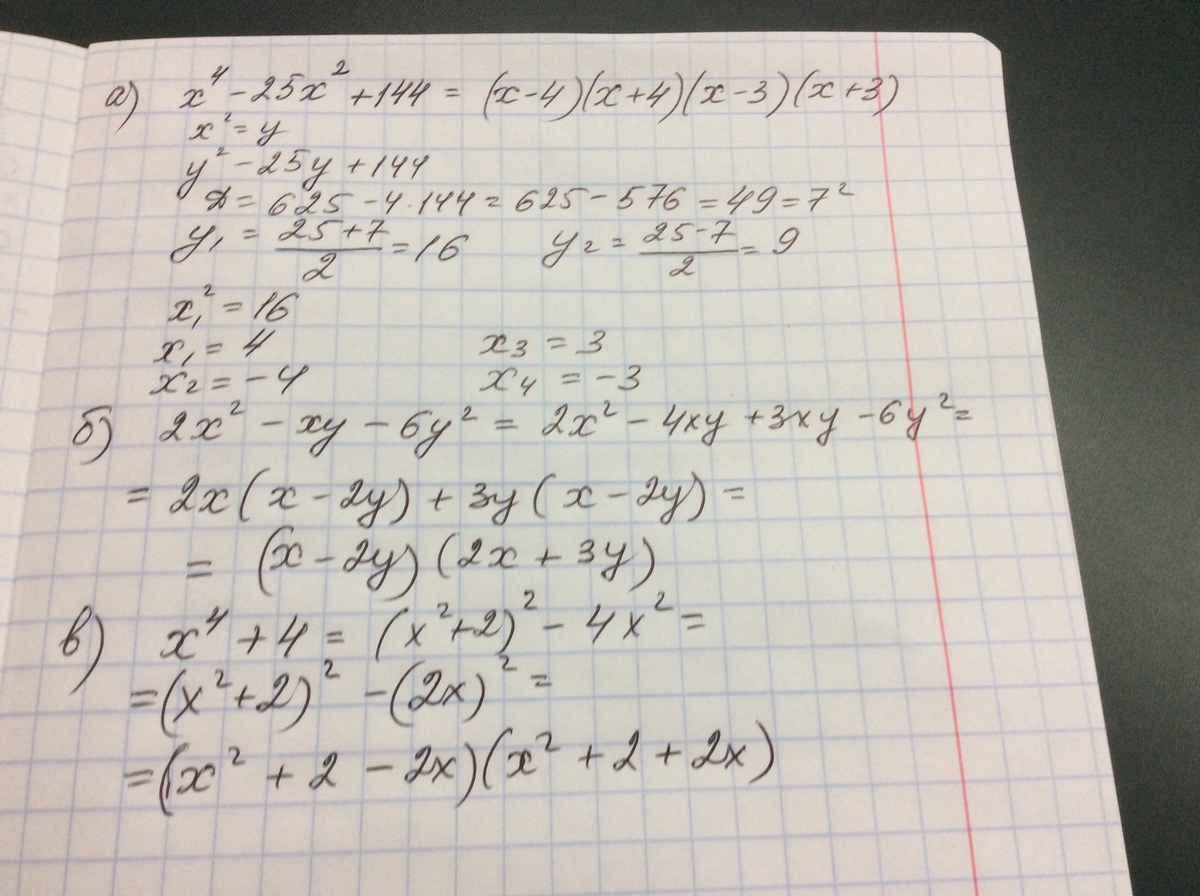 а) x⁴ - 25x² + 144 = (x-4)(x+4)(x-3)(x+3)
x² = y
y² - 25y + 144
D = 625 - 4·144 = 625 - 576 = 49 = 7²
y₁ = (25+7)/2 = 16 y₂ = (25-7)/2 = 9
x₁² = 16
x₁ = 4 x₃ = 3
x₂ = -4 x₄ = -3
б) 2x² - xy - 6y² = 2x² - 4xy + 3xy - 6y² =
= 2x(x - 2y) + 3y(x - 2y) =
= (x - 2y)(2x + 3y)
в) x⁴ + 4 = (x²+2)² - 4x² =
= (x²+2)² - (2x)² =
= (x² + 2 - 2x)(x² + 2 + 2x)